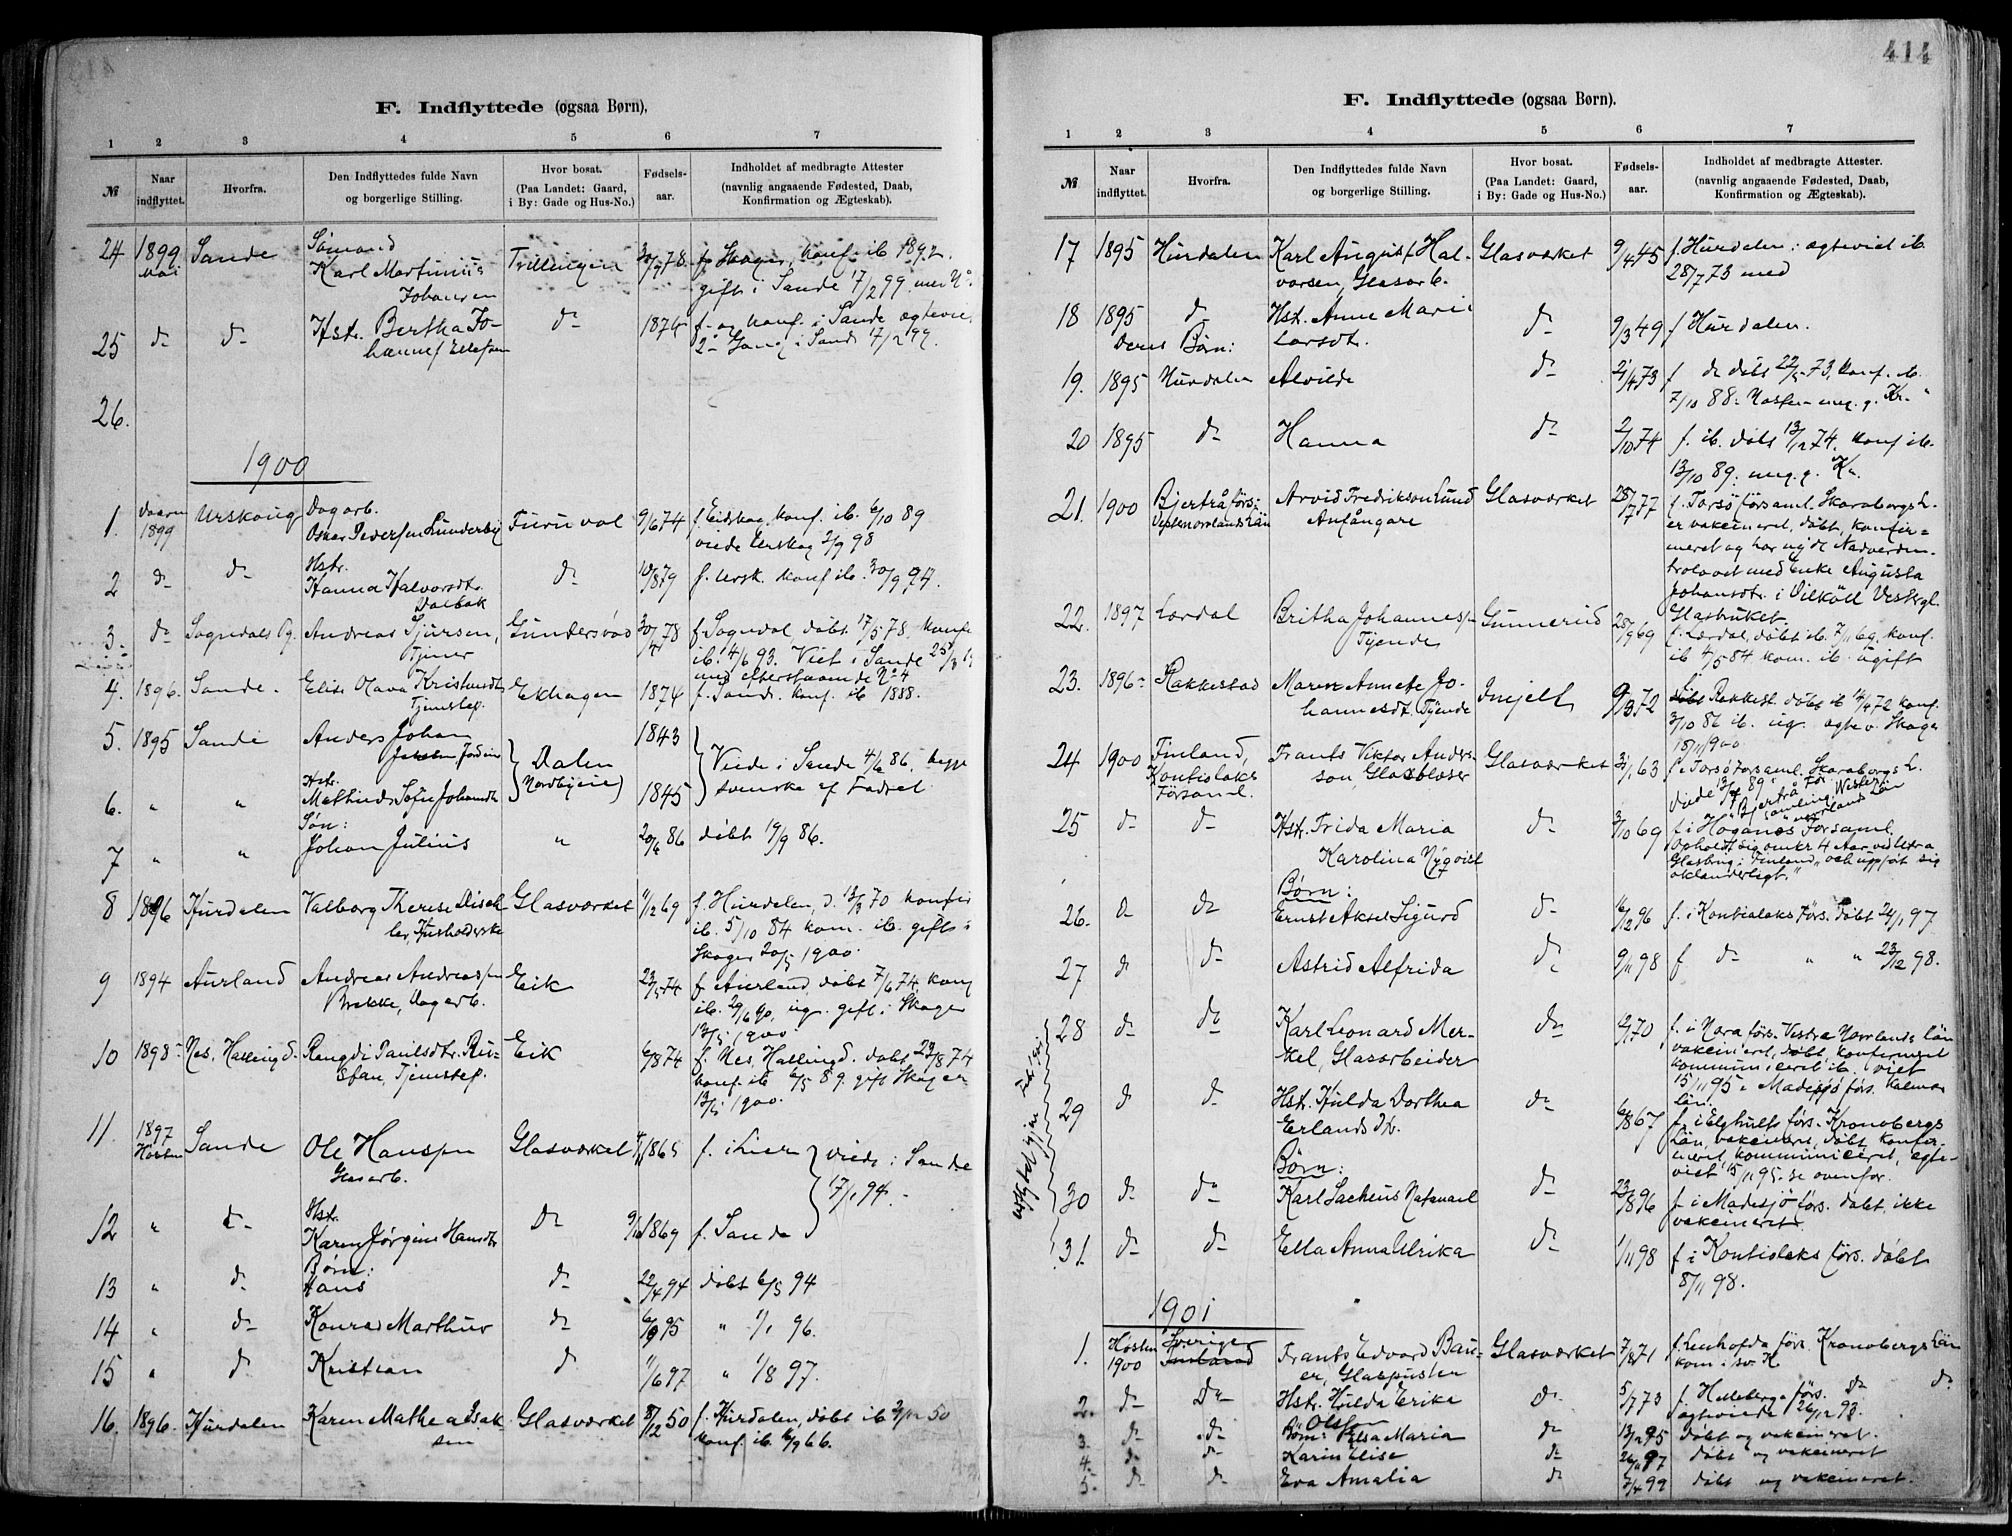 414
F. Indflyttede (ogsaa Børn),
1 2 3 4 5 6 7
№
Naar indflyttet.
Hvorfra.
Den Indflyttedes fulde Navn og borgerlige Stilling.
Hvor bosat. (Paa Landet: Gaard, i By: Gade og Hus-No.)
Fødsels-aar.
Indholdet af medbragte Attester (navnlig angaaende Fødested, Daab, Konfirmation og Ægteskab).
24 1899 Mai Sande Sømand
Karl Martinius Trillingen 78 f. Skoger, konf. ib. 1892.
Johansen gift i Sande 17/2 99 med No
25 d- d- Hstr. Bertha Jo- d- 1874 f. og konf. i Sande
2den Gang i Sande 17/2 99.
26.
1900
1. Vaaren 1899 Urskoug Dagarb. Furuvol 9/6 74 f. Eidskog, konf. ib. 6/10 89
Oskar Pedersen Lunderby viede Urskog 2/9 98
2 d- d- Hstr. d- 10/8 79 f. Ursk. konf. ib. 30/9 94.
Hanna Halvorsdtr.
Dalbak
3. d- Sogndals Pg. Andreas Sjursen, Gundersrød 30/4 78 f. Sogndal, døbt 17/5 78, konf.
Tjener ib. 4/6 93. Viet i Sande 25/3
med efterstaaende No 4
4. 1896. Sande. Elise Olava Kristensdtr. Ekhagen 1874 f. Sande. konf. ib 1888.
Tjenstep.
5. 1895 Sande Anders Johan 1843
Dalen Viede i Sande 86, begge
6. " " Hstr. (Nordbyeie) 1845 svenske af Fødsel
Mathilde Sofie Johansdtr.
Søn:
7 " " Johan Julius " 20/6 86 døbt 19/9 86.
8 1896 Hurdalen Valborg Therese Disch- Glasværket 1/12 69 f. Hurdalen, d. 13/3 70 konfir
ler, Husholderske ib. 5/10 84 kom. ib. gift i
Skoger 20/5 1900.
9 1894 Aurland Andreas Andreassen Eik 23/5 74 f. Aurland, døbt 7/6 74, konf.
Brekke, Dagarb. ib. 29/6 90, ug. gift i Skoger
13/5 1900.
10 1898 Nes, Hallingd. Rangdi Paulsdtr. Ru- Eik 6/8 74 f. Nes, Hallingd. døbt 23/8 74
stan, Tjenstep. konf. ib. 6/5 89. gift Skoger
13/5 1900.
11. 1897 Høsten Sande Ole Hanssen Glasværket 1865 f. i Lier viede i Sande
Glasarb. 17/1 94.
12 " d- Hstr. d- 1869 f. Sande
Karen Jørgine Hansdtr.
Børn:
13 " d- Hans d- 22/4 94 døbt 6/5 94
14 " d- Konrad Marthus d- 6/9 95 " 1/1 96.
15 " d- Kristian d- 1/6 97 " 1/8 97.
16. 1896. Hurdalen Karen Mathea Isak- Glasværket 8/12 50 f. Hurdalen, døbt ib 50
sen konf. ib. 6/9 66.
F. Indflyttede (ogsaa Børn).
1 2 3 4 5 6 7
№
Naar indflyttet.
Hvorfra.
Den Indflyttedes fulde Navn og borgerlige Stilling.
Hvor bosat. (Paa Landet: Gaard, i By: Gade og Hus-No.)
Fødsels-aar.
Indholdet af medbragte Attester. (navnlig angaaende Fødested, Daab, Konfirmation og Ægteskab).
17 1895 Hurdalen Karl August Hal- Glasværket 9/4 45 f. Hurdalen: egteviet ib.
vorsen, Glasarb. 28/7 73 med
18 1895 d- Hst. Anne Marie d- 9/3 49 f. Hurdalen.
Deres Børn: Larsdt.
19. 1895 Hurdalen Alvilde d- 2/4 73 f. d- døbt 22/5 73, konf. ib.
7/10 88.
20 1895 d- Hanna d- 2/10 74 f. ib. døbt 13/12 74. konf. ib.
13/10 89. meg. g. Kr.
21. 1900 Bjertrå förs: Arvid Fredrikson Lund Glasværket 28/7 77 f. Torsö församl. Skaraborgs L.
Vesternorrlands Län Anfångare er vakcineret, døbt, konfir-
meret og har nydt Nadverden.
trolovet med Enke Augusta
Johansdtr. i
Glasbruket.
22. 1897 Lærdal Britha Johannesn Gunnerud 28/9 69 f. Lærdal, døbt ib. 7/11 69, konf.
Tjende ib 4/5 84 kom. ib. ugift
23. 1896 Rakkestad Maren Annete Jo- 9/3 72 f. i Rakkest. døbt ib 14/4 72 konf.
hannesdt. Tjende 3/10 86 ib. ug. egtev. Skoger
18/11 1900
24 1900 Finland, Frants Viktor Anders- Glasværket 3/1 63 f. i Torsö Forsaml. Skaraborgs L.
Kontiolaks son, Glasblæser viede 89 i Bjertrå För-
Församl. samling, Vester-
norrlands Län
25 d- d- Hst. Frida Maria d- 3/10 69 f. i Höganäs Församl.
Karolina Nyqvist Opholdt sig omkr 4 Aar ved
Glasbrug i Finland "och uppfört sig
oklanderligt."
Børn:
26. d- d- Ernst Aksel Sigurd d- 16/12 96 f. i Kontiolaks Förs. døbt 24/1 97
27 d- d- Astrid Alfrida d- 9/11 98 f d- " " 23/12 98.
28 d- d- Karl Leonard Mer- d- 70 f. i Nora förs. Vestra Norrlands län
kel, Glasarbeider vakcineret, døbt, konfirmeret
kommuniceret ib. viet
15/11 95 i Madesjö förs. Kalmar
län.
29 d- d- Hst. Hulda Dorthea d- 67 f. i Elghults förs. Kronobergs
Erlandsdtr. Län, vakcineret, døbt, konfir-
meret, kommuniceret, egte-
viet 15/11 95. se ovenfor.
Børn:
30 d- d- Karl Sacheus Natanael d- 23/8 96 f. i Madesjö förs. døbt, ikke
vakcineret.
31. d- d- Ella Anna Ulrika d- 1/11 98 f. i Kontiolaks förs. døbt
8/11 98.
1901
1. Høsten 1900 Sverige Frants Edvard Bau- Glasværket 7/8 71 f. Lenhofda förs. Kronobergs Län
er, Glaspuster kom. i sv. K.
2. d- d- Hst. Hulda Erika d- 5/7 73 f. Helleberga förs. d- d-
Olsson egteviede 26/12 93.
3. d- d- Børn: Elsa Maria d- 13/12 95 døbt og vakcineret.
4. d- d- Karin Elise d- 26/11 97 døbt og vakcineret
5. d- d- Eva Amalia d- 7/4 99 døbt og vakcineret.